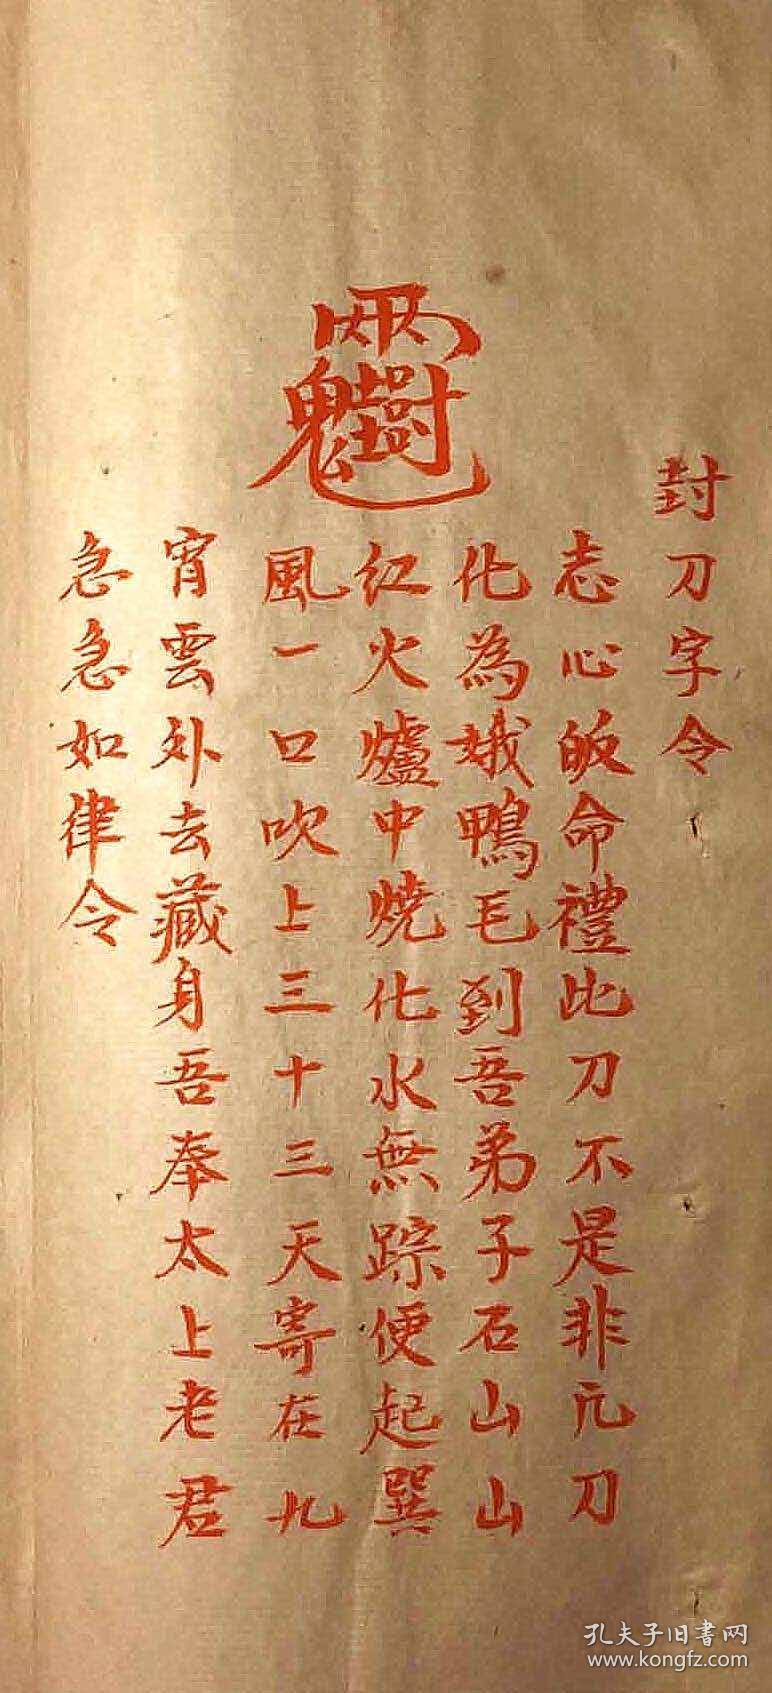 封刀字令
志心皈命禮此刀不是非凡刀
化為娥鴨毛到吾弟子石山山
紅火爐中燒化水無踪便起巽
風一口吹上三十三天寄在九
宵雲外去藏身吾奉太上老君
急急如律令
孔夫子旧書网
www.kongfz.com